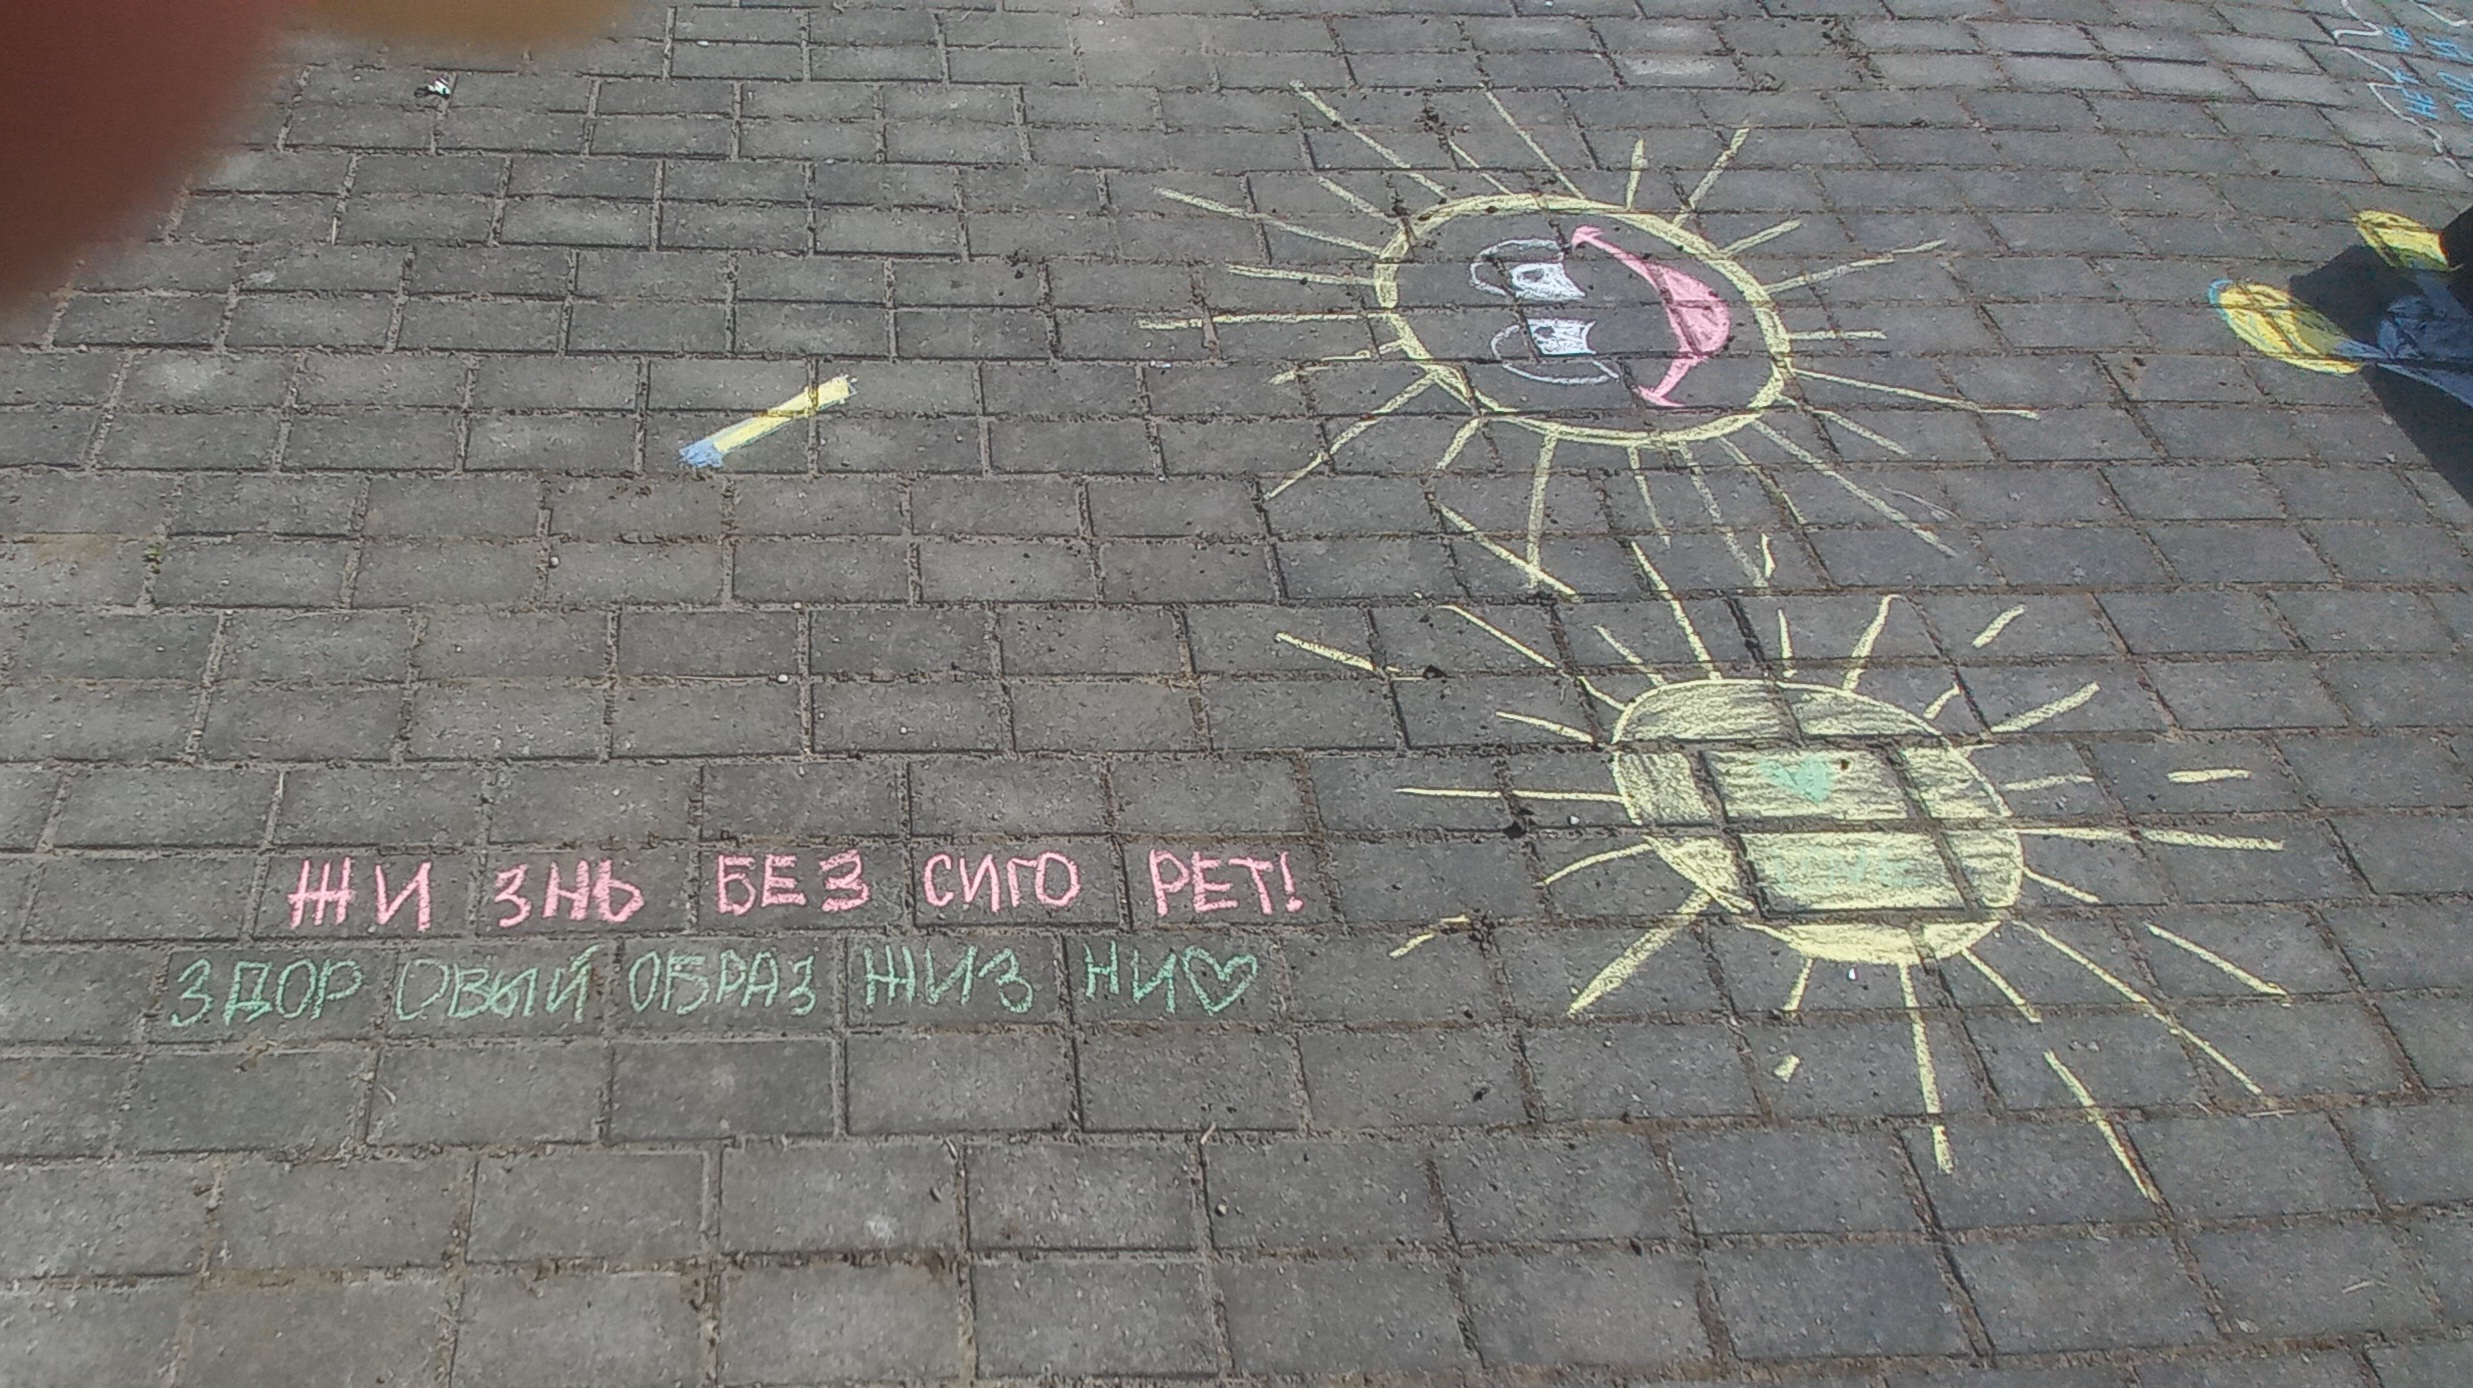 ЖИЗНЬ БЕЗ СИГОРЕТ!
ЗДОРОВЫЙ ОБРАЗ ЖИЗНИ♡